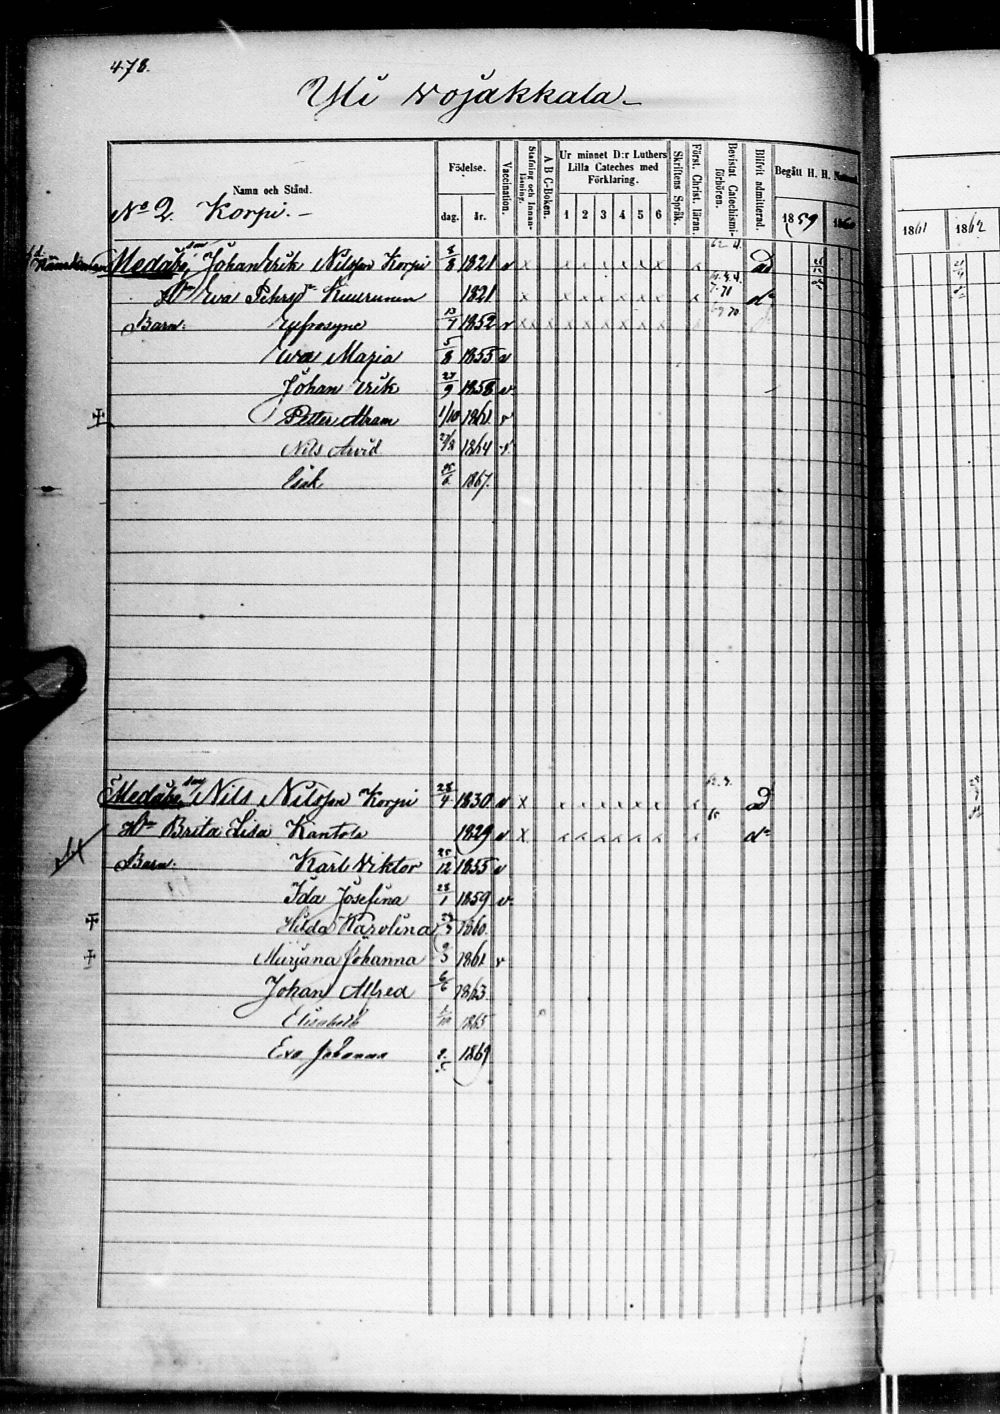 478.
Yli Wojakkala
Namn och Stånd.
No 2 Korpi.
Födelse.
dag. år.
Vaccination.
Stafning och Innanläsning.
A B C-Boken.
Ur minnet D:r Luthers Lilla Cateches med Förklaring.
1 2 3 4 5 6
Skriftens Språk.
Först. Christ. läran.
Bevistat Catechismiförhören.
Blifvit admitterad.
Begått H. H. Nattvard.
1859 1860 1861 1862
Medäg. Johan Erik Nilsson Korpi 1821 v ad
Hu Eva Pehrsdr 1821 do
Barn: Eufrosyne 1852 v
Eva Maria 5/8 1855 v
Johan Erik 27/9 1858 v
Petter Abram 1/10 1861 v
Nils Arvid 1864 v
Esak 1867.
Medäg. son Nils Nilsson Korpi 28/4 1830 v x ad
Hu Brita Lisa Kantola 1829 v x do
Barn: Karl Viktor 25/12 1855 v
Ida Josefina 28/1 1859 v
Hilda Karolina 1860
Mirjana Johanna 9/3 1861 v
Johan Alfred 6/6 1863
Elisabeth 1865
Eva Johanna 1869